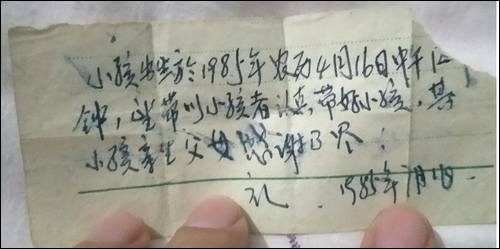 小孩出生於1985年农历4月16日中午12
钟，望带到小孩者认真带好小孩，其
小孩亲生父母感谢不尽！
礼 1985年 月 日